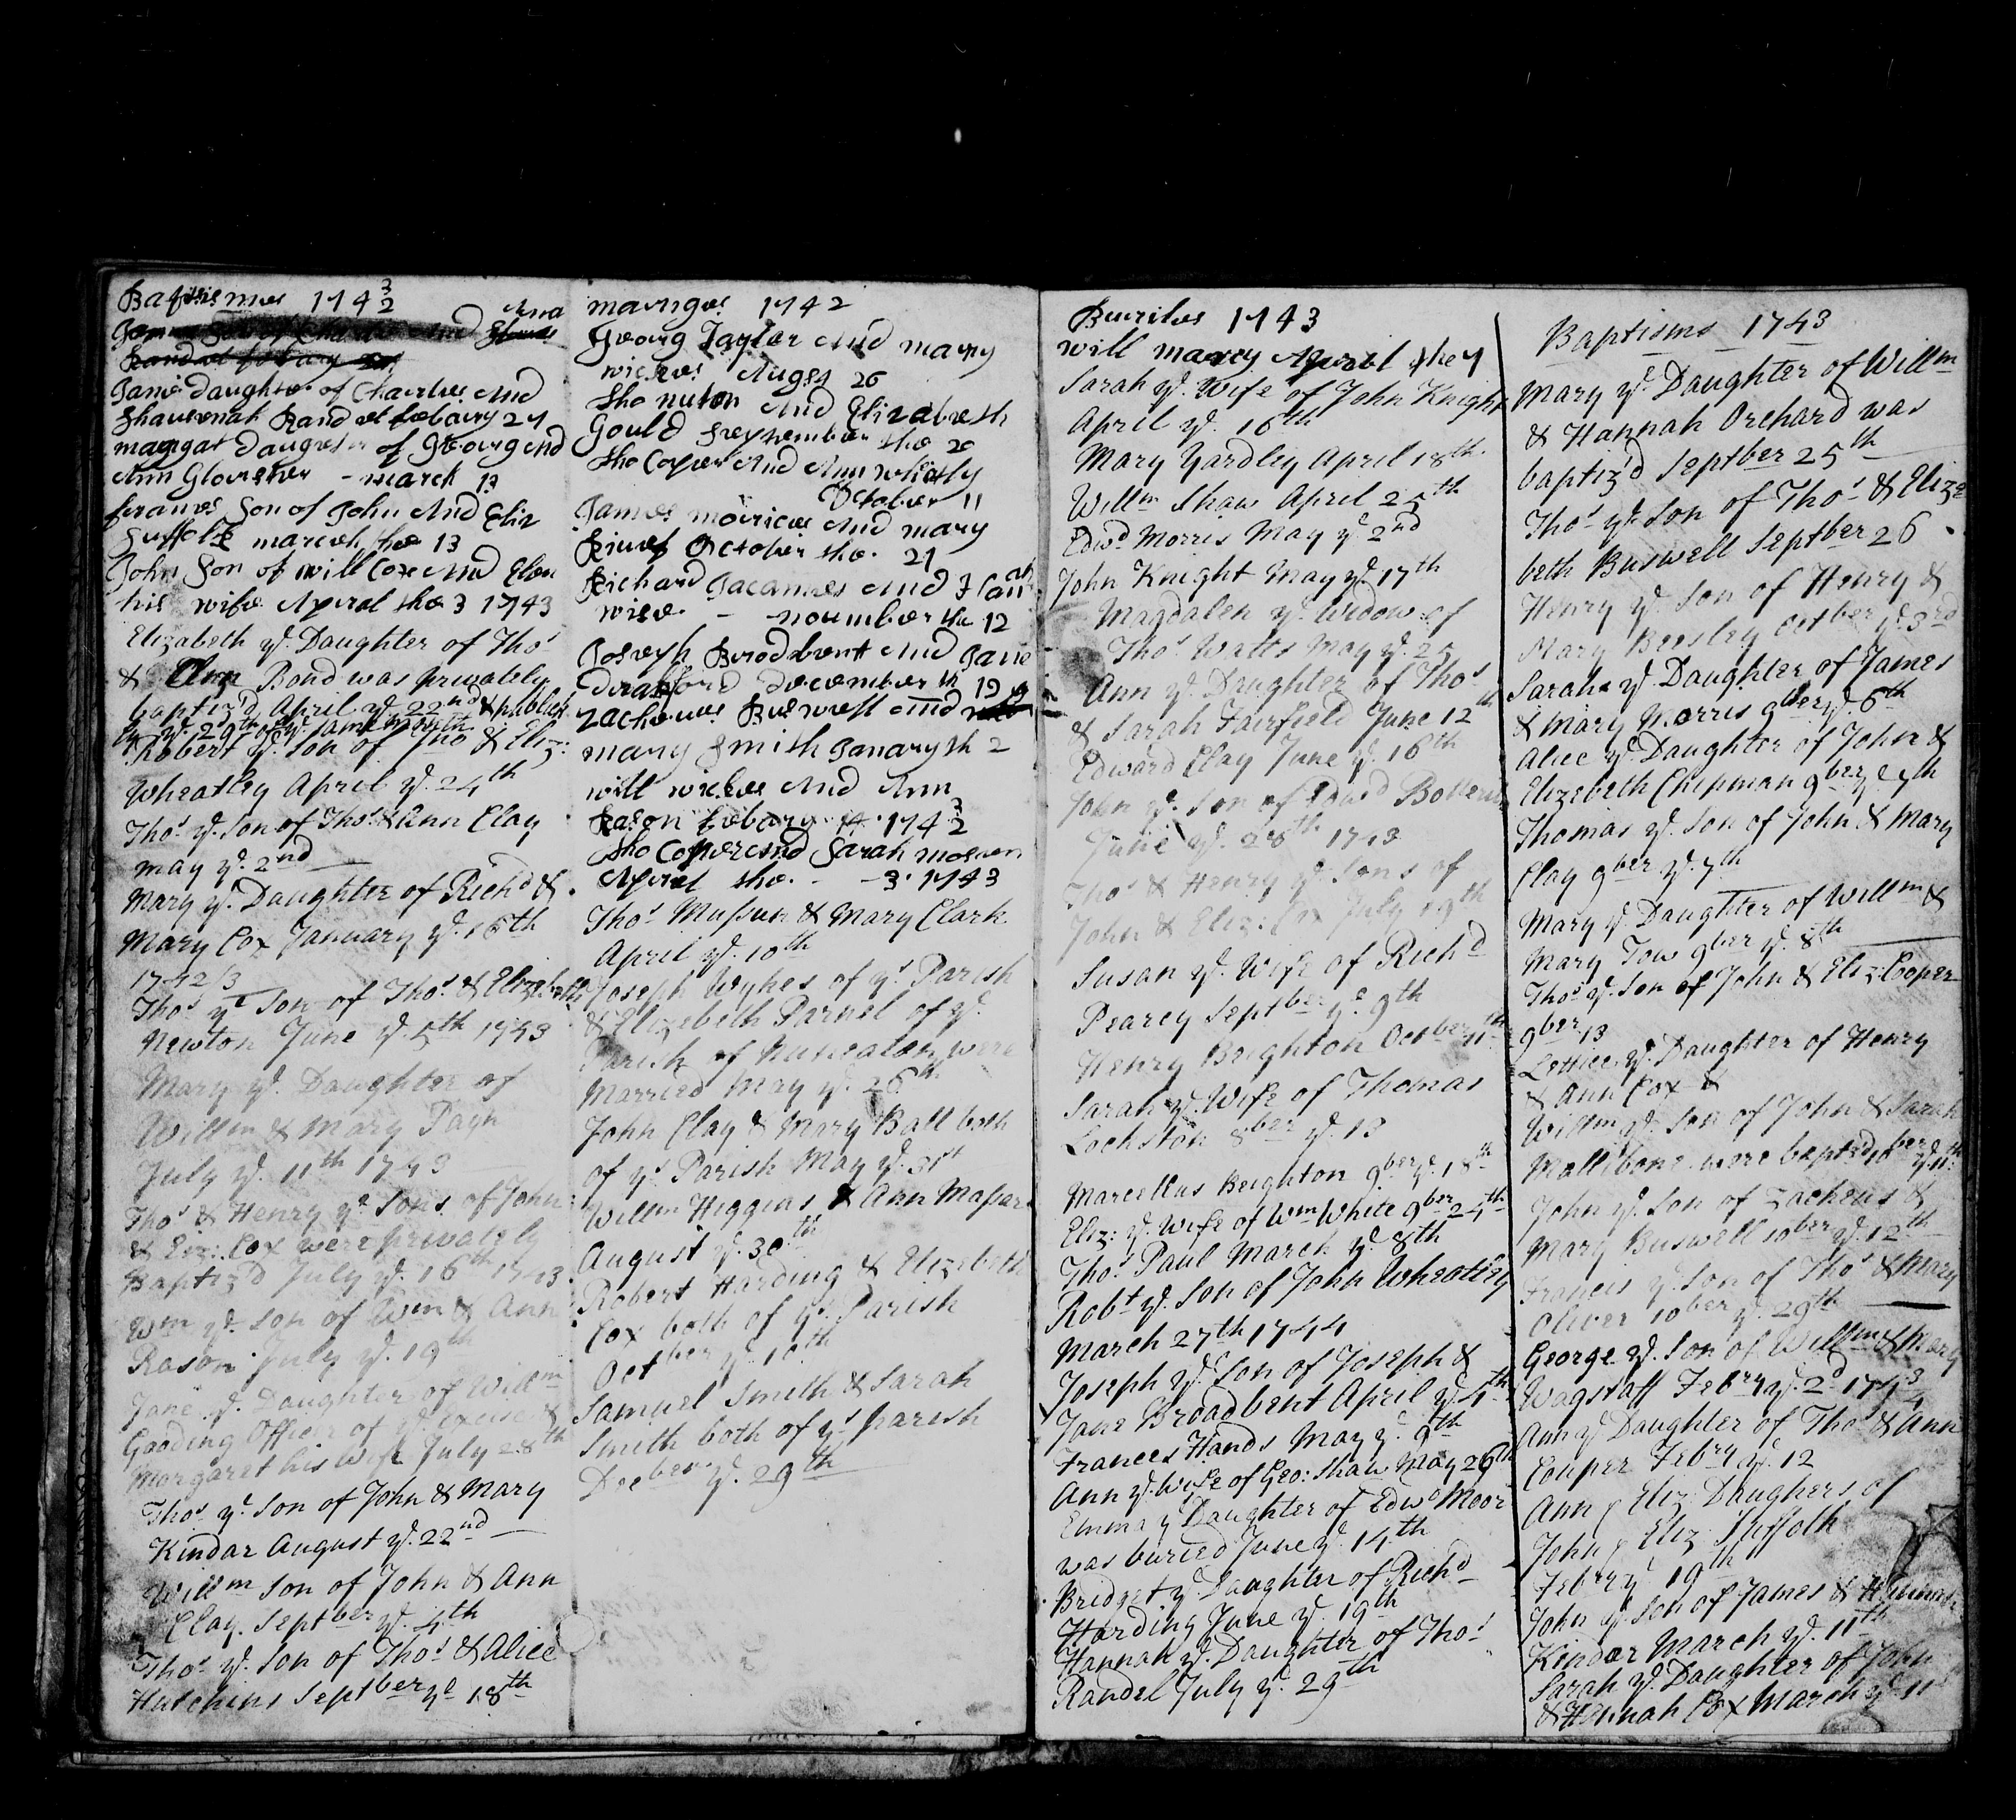 Baptismes 1742/3
Ana
Jane Daughter of Charles And
Shusanah Randel febary 27
margat Daugeter of Georg and
Ann Glovester - march 13
Son of John And Eliz
Suffolk march the 13
John Son of will Cox And Elen
his wife Aperal the 3 1743
Elizabeth ye Daughter of Thos
& Ann Bond was privately
baptiz'd April ye 22nd & publick
ly ye 29th of ye same month
Robert ye Son of Jno & Eliz:
Wheatley April ye 24th
Thos ye Son of Thos & Ann Clay
may ye 2nd
Mary ye Daughter of Richd &
Mary Cox January ye 16th
1742/3
Thos ye Son of Thos & Elizabeth
Newton June ye 5th 1743
Mary ye Daughter of
Willm & Mary Payn
July ye 11th 1743
Thos & Henry ye Sons of John
& Eiz: Cox were privately
Baptiz'd July ye 16th 1743
Wm ye Son of Wm & Ann
Rason July ye 19th
Jane ye Daughter of Willm
Gooding Officer of ye Excise &
Margaret his Wife July 28th
Thos ye Son of John & Mary
Kindar August ye 22nd
Willm Son of John & Ann
Clay Septber ye 4th
Thos ye Son of Thos & Alice
Hutchins Septber ye 18th
mariges 1742
Georg Taylor And mary
wickes Augst 26
Tho nuton And Elizabeth
Gould Seyptember the 20
Tho Coper And Ann wheatly
October 11
James moricue And mary
October the 21
Richard Jacames And Han ah
wise - nouember the 12
Joseyh Brodbent And Jane
Draxford December th 19
Zacheues Buswell And
mary Smith Janary th 2
will wickes And Ann
Rason febary 1742/3
Tho Coper And Sarah
Aperel the - 3 1743
Thos Mussun & Mary Clark
April ye 10th
Joseph Wykes of ys Parish
& Elizebeth Parnel of ye
Parish of Nuneaton were
Married May ye 26th
John Clay & Mary Ball both
of ys Parish May ye 31st
Willm Higgins & Ann Massar
August ye 30th
Robert Harding & Elizebeth
Cox both of ys Parish
Octber ye 10th
Samuel Smith & Sarah
Smith both of ys parish
Decber ye 29th
Buriles 1743
will marcy Aperel the 7
Sarah ye Wife of John Knight
April ye 16th
Mary Yardley April 18th
Willm Shaw April 25th
Edwd Morris May ye 2nd
John Knight May ye 17th
Magdalen ye Widow of
Thos Watts May ye 25
Ann ye Daughter of Thos
& Sarah Fairfield June 12th
Edward Clay June ye 16th
John ye Son of Edwd
June ye 28th 1743
Thos & Henry ye Sons of
John & Eliz: Cox July 19th
Susan ye Wife of Richd
Pearcy Septber ye 9th
Henry Beighton Octber 11th
Sarah ye Wife of Thomas
Lockston 8ber ye 13
Marcellus Beighton 9ber ye 18th
Eliz: ye Wife of Wm White 9ber 24th
Thos Paul March ye 8th
Robt ye Son of John Wheatley
March 27th 1744
Joseph ye Son of Joseph &
Jane Broadbent April ye 4th
Frances Hands May ye 9th
Ann ye Wife of Geo: Shaw May 26th
Emma ye Daughter of Edwd Moor
was buried June ye 14th
Bridget ye Daughter of Richd
Harding June ye 19th
Hannah ye Daughter of Thos
Randel July ye 29th
Baptisms 1743
Mary ye Daughter of Willm
& Hannah Orchard was
baptiz'd Septber 25th
Thos ye Son of Thos & Eliza
beth Buswell Septber 26
Henry ye Son of Henry &
Mary Beesley Octber ye 3rd
Sarah ye Daughter of James
& Mary Morris 9ber ye 6th
Alice ye Daughter of John &
Elizebeth Chipman 9ber ye 7th
Thomas ye Son of John & Mary
Clay 9ber ye 7th
Mary ye Daughter of Willm &
Mary Tow 9ber ye 8th
Thos ye Son of John & Eliz: Cooper
9ber 13
Lettice ye Daughter of Henry
& Ann Cox &
Willm ye Son of John & Sarah
Mallibone were baptzd 10ber ye 11th
John ye Son of Zacheus &
Mary Buswell 10ber ye 12th
Francis ye Son of Thos & Mary
Oliver 10ber ye 29th
George ye Son of Willm & Mary
Wagstaff Febry ye 2d 1743/4
Ann ye Daughter of Thos & Ann
Couper Febry ye 12
Ann & Eliz: Daughers of
John & Eliz: Suffolk
Febry ye 19th
John ye Son of James & Hannah
Kindar March ye 11th
Sarah ye Daughter of John
& Hannah Cox March ye 11th